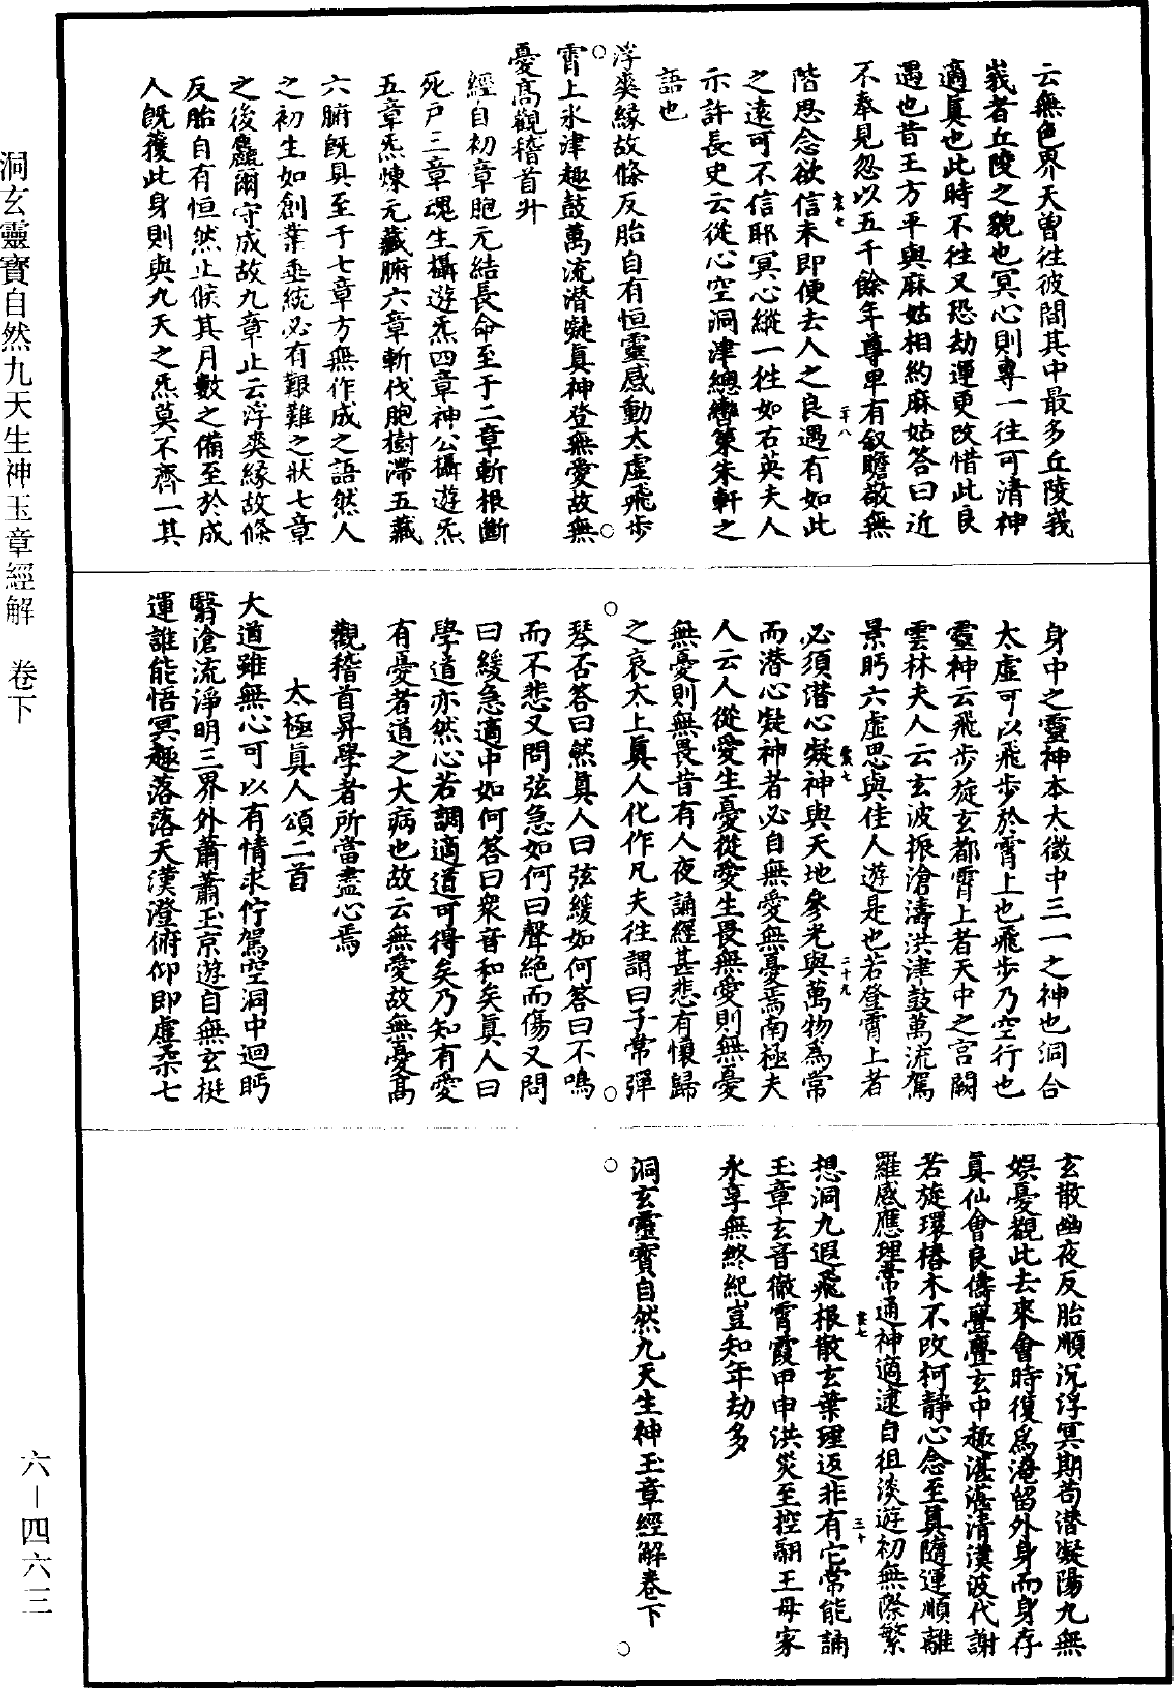 云無色界天曾往彼間其中最多丘陵峩
峩者丘陵之貌也冥心則專一往可清神
適真也此時不往又恐劫運更改惜此良
遇也昔王方平與麻姑相約麻姑答曰近
不奉見忽以五千餘年尊卑有叙瞻敬無
階思念欲信未即便去人之良遇有如此
之遠可不信耶冥心縱一往如右英夫人
示許長史云從心空洞津總轡策朱軒之
語也
浮爽緣故條反胎自有恒靈感動太虛飛步
霄上氷津趣鼓萬流潜凝真神登無愛故無
憂高觀稽首升
經自初章胞元結長命至于二章斬根斷
死戶三章魂生攝遊炁四章神公攝遊炁
五章炁煉元藏腑六章斬伐胞樹滯五藏
六腑既具至于七章方無作成之語然人
之初生如創業垂統必有艱難之狀七章
之後麤爾守成故九章止云浮爽緣故條
反胎自有恒然止候其月數之備至於成
人既獲此身則與九天之炁莫不齊一其
身中之靈神本大微中三一之神也洞合
太虛可以飛步於霄上也飛步乃空行也
靈神云飛步旋玄都霄上者天中之宮闕
雲林夫人云玄波振滄濤洪津鼓萬流駕
景眄六虛思與佳人遊是也若登霄上者
必須潜心凝神與天地參光與萬物爲常
而潜心凝神者必自無愛無憂焉南極夫
人云人從愛生憂從愛生畏無愛則無憂
無憂則無畏昔有人夜誦經甚悲有懷歸
之哀太上真人化作凡夫往謂曰子常彈
琴否答曰然真人曰弦緩如何答曰不鳴
而不悲又問弦急如何曰聲絶而傷又問
曰緩急適中如何答曰衆音和矣真人曰
學道亦然心若調適道可得矣乃知有愛
有憂者道之大病也故云無愛故無憂高
觀稽首昇學者所當盡心焉
太極真人頌二首
大道雖無心可以有情求佇駕空洞中迴眄
翳滄流淨明三界外蕭蕭玉京遊自無玄挺
運誰能悟冥趣落落天漢澄俯仰即虛柔七
玄散幽夜反胎順沉浮冥期苟潜凝陽九無
娯憂觀此去來會時復爲淹留外身而身存
真仙會良儔亹亹玄中趣湛湛清漢波代謝
若旋環椿木不改柯靜心念至真隨運順離
羅感應理常通神適逮自徂淡遊初無際繁
想洞九遐飛根散玄葉理返非有它常能誦
玉章玄音徹霄霞甲申洪災至控翮王母家
永享無終紀豈知年劫多
洞玄靈寶自然九天生神玉章經解卷下
洞玄靈寶自然九天生神玉章經解　卷下
六—四六三